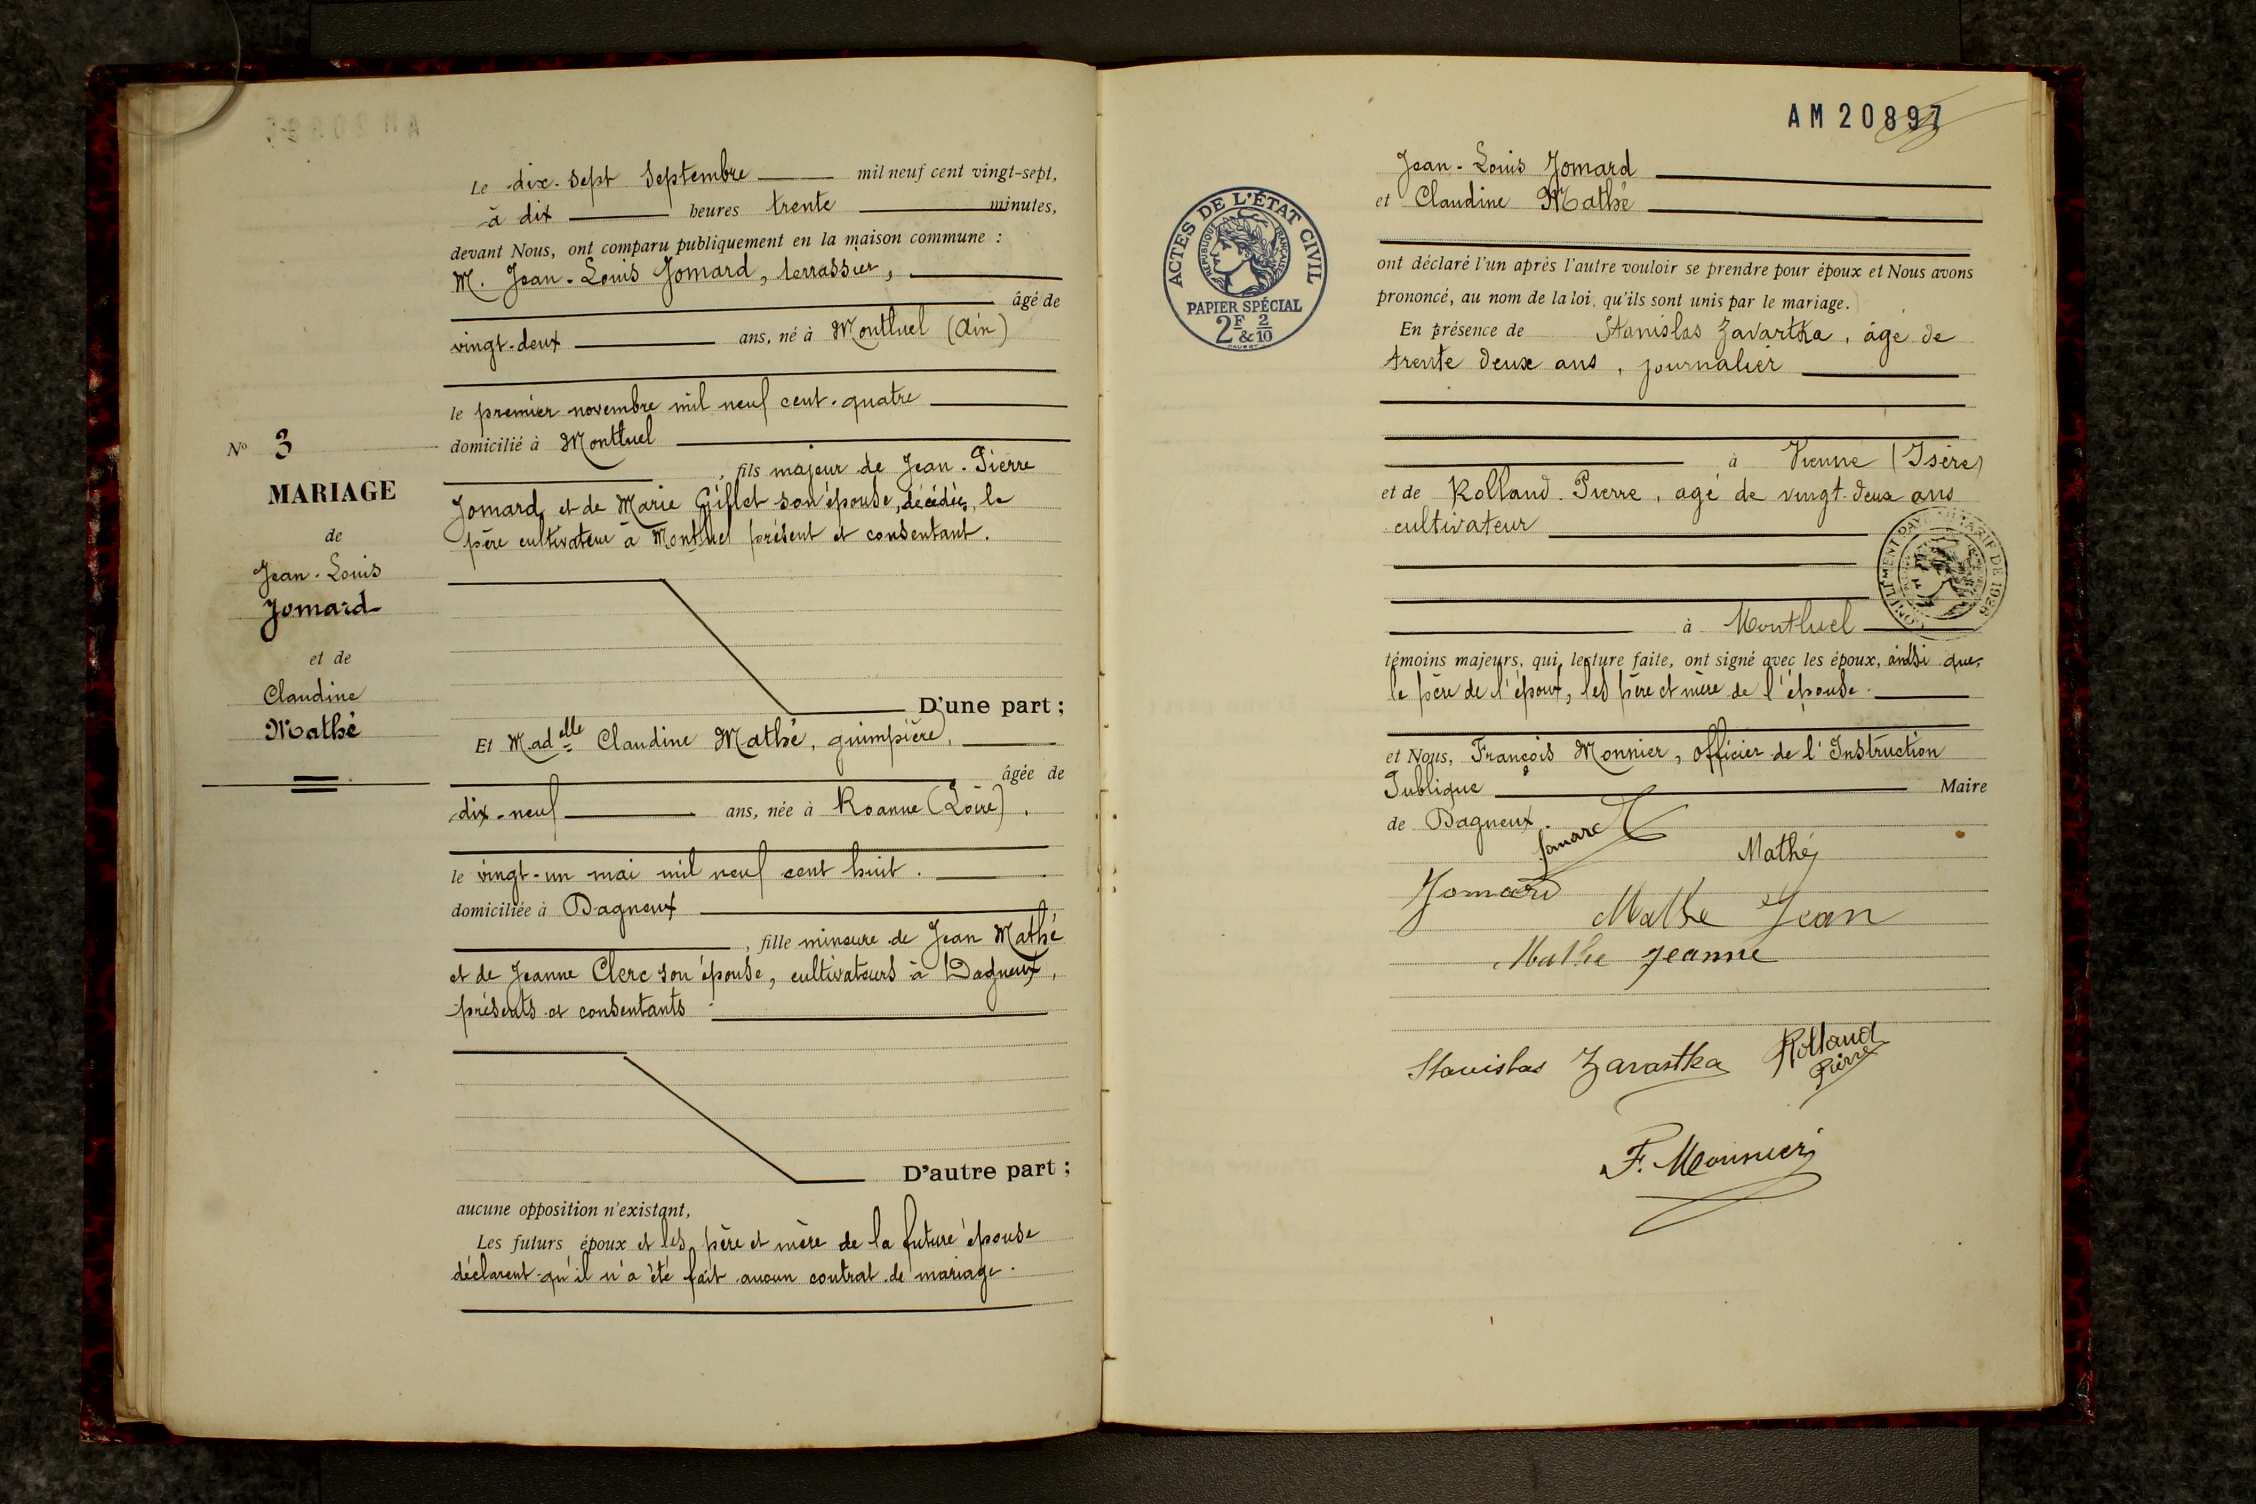 Le dix-sept Septembre mil neuf cent vingt-sept,
à dix heures trente minutes,
devant Nous, ont comparu publiquement en la maison commune :
M. Jean-Louis Jomard, terrassier,
âgé de
vingt-deux ans, né à Montluel (Ain)
le premier novembre mil neuf cent-quatre
domicilié à Montluel
, fils majeur de Jean-Pierre
Jomard, et de Marie Gillet son épouse, décédée, le
père cultivateur à Montluel présent et consentant.
D'une part ;
Nº 3
MARIAGE
de
Jean-Louis
Jomard
et de
Claudine
Mathé
Et Madelle Claudine Mathé, guimpière,
âgée de
dix-neuf ans, née à Roanne (Loire),
le vingt-un mai mil neuf cent huit.
domiciliée à Dagneux
, fille mineure de Jean Mathé
et de Jeanne Clerc son épouse, cultivateurs à Dagneux,
présents et consentants
D'autre part ;
aucune opposition n'existant,
Les futurs époux et les père et mère de la future épouse
déclarent qu'il n'a été fait aucun contrat de mariage.
AM 20897
ACTES DE L'ÉTAT CIVIL
RÉPUBLIQUE FRANÇAISE
PAPIER SPÉCIAL
2F & 2/10
Jean-Louis Jomard
et Claudine Mathé
ont déclaré l'un après l'autre vouloir se prendre pour époux et Nous avons
prononcé, au nom de la loi, qu'ils sont unis par le mariage.
En présence de Stanislas Zavartka, âgé de
trente deux ans, journalier
à Vienne (Isère)
et de Rolland Pierre, agé de vingt-deux ans
cultivateur
TARIF DE 1926
à Montluel
témoins majeurs, qui, lecture faite, ont signé avec les époux, ainsi que,
le père de l'époux, les père et mère de l'épouse.
et Nous, François Monnier, officier de l'Instruction
Publique Maire
de Dagneux.
Jomard
Mathé
Jomard
Mathe Jean
Mathe Jeanne
Stanislas Zavartka
Rolland
Pierre
F. Monnier